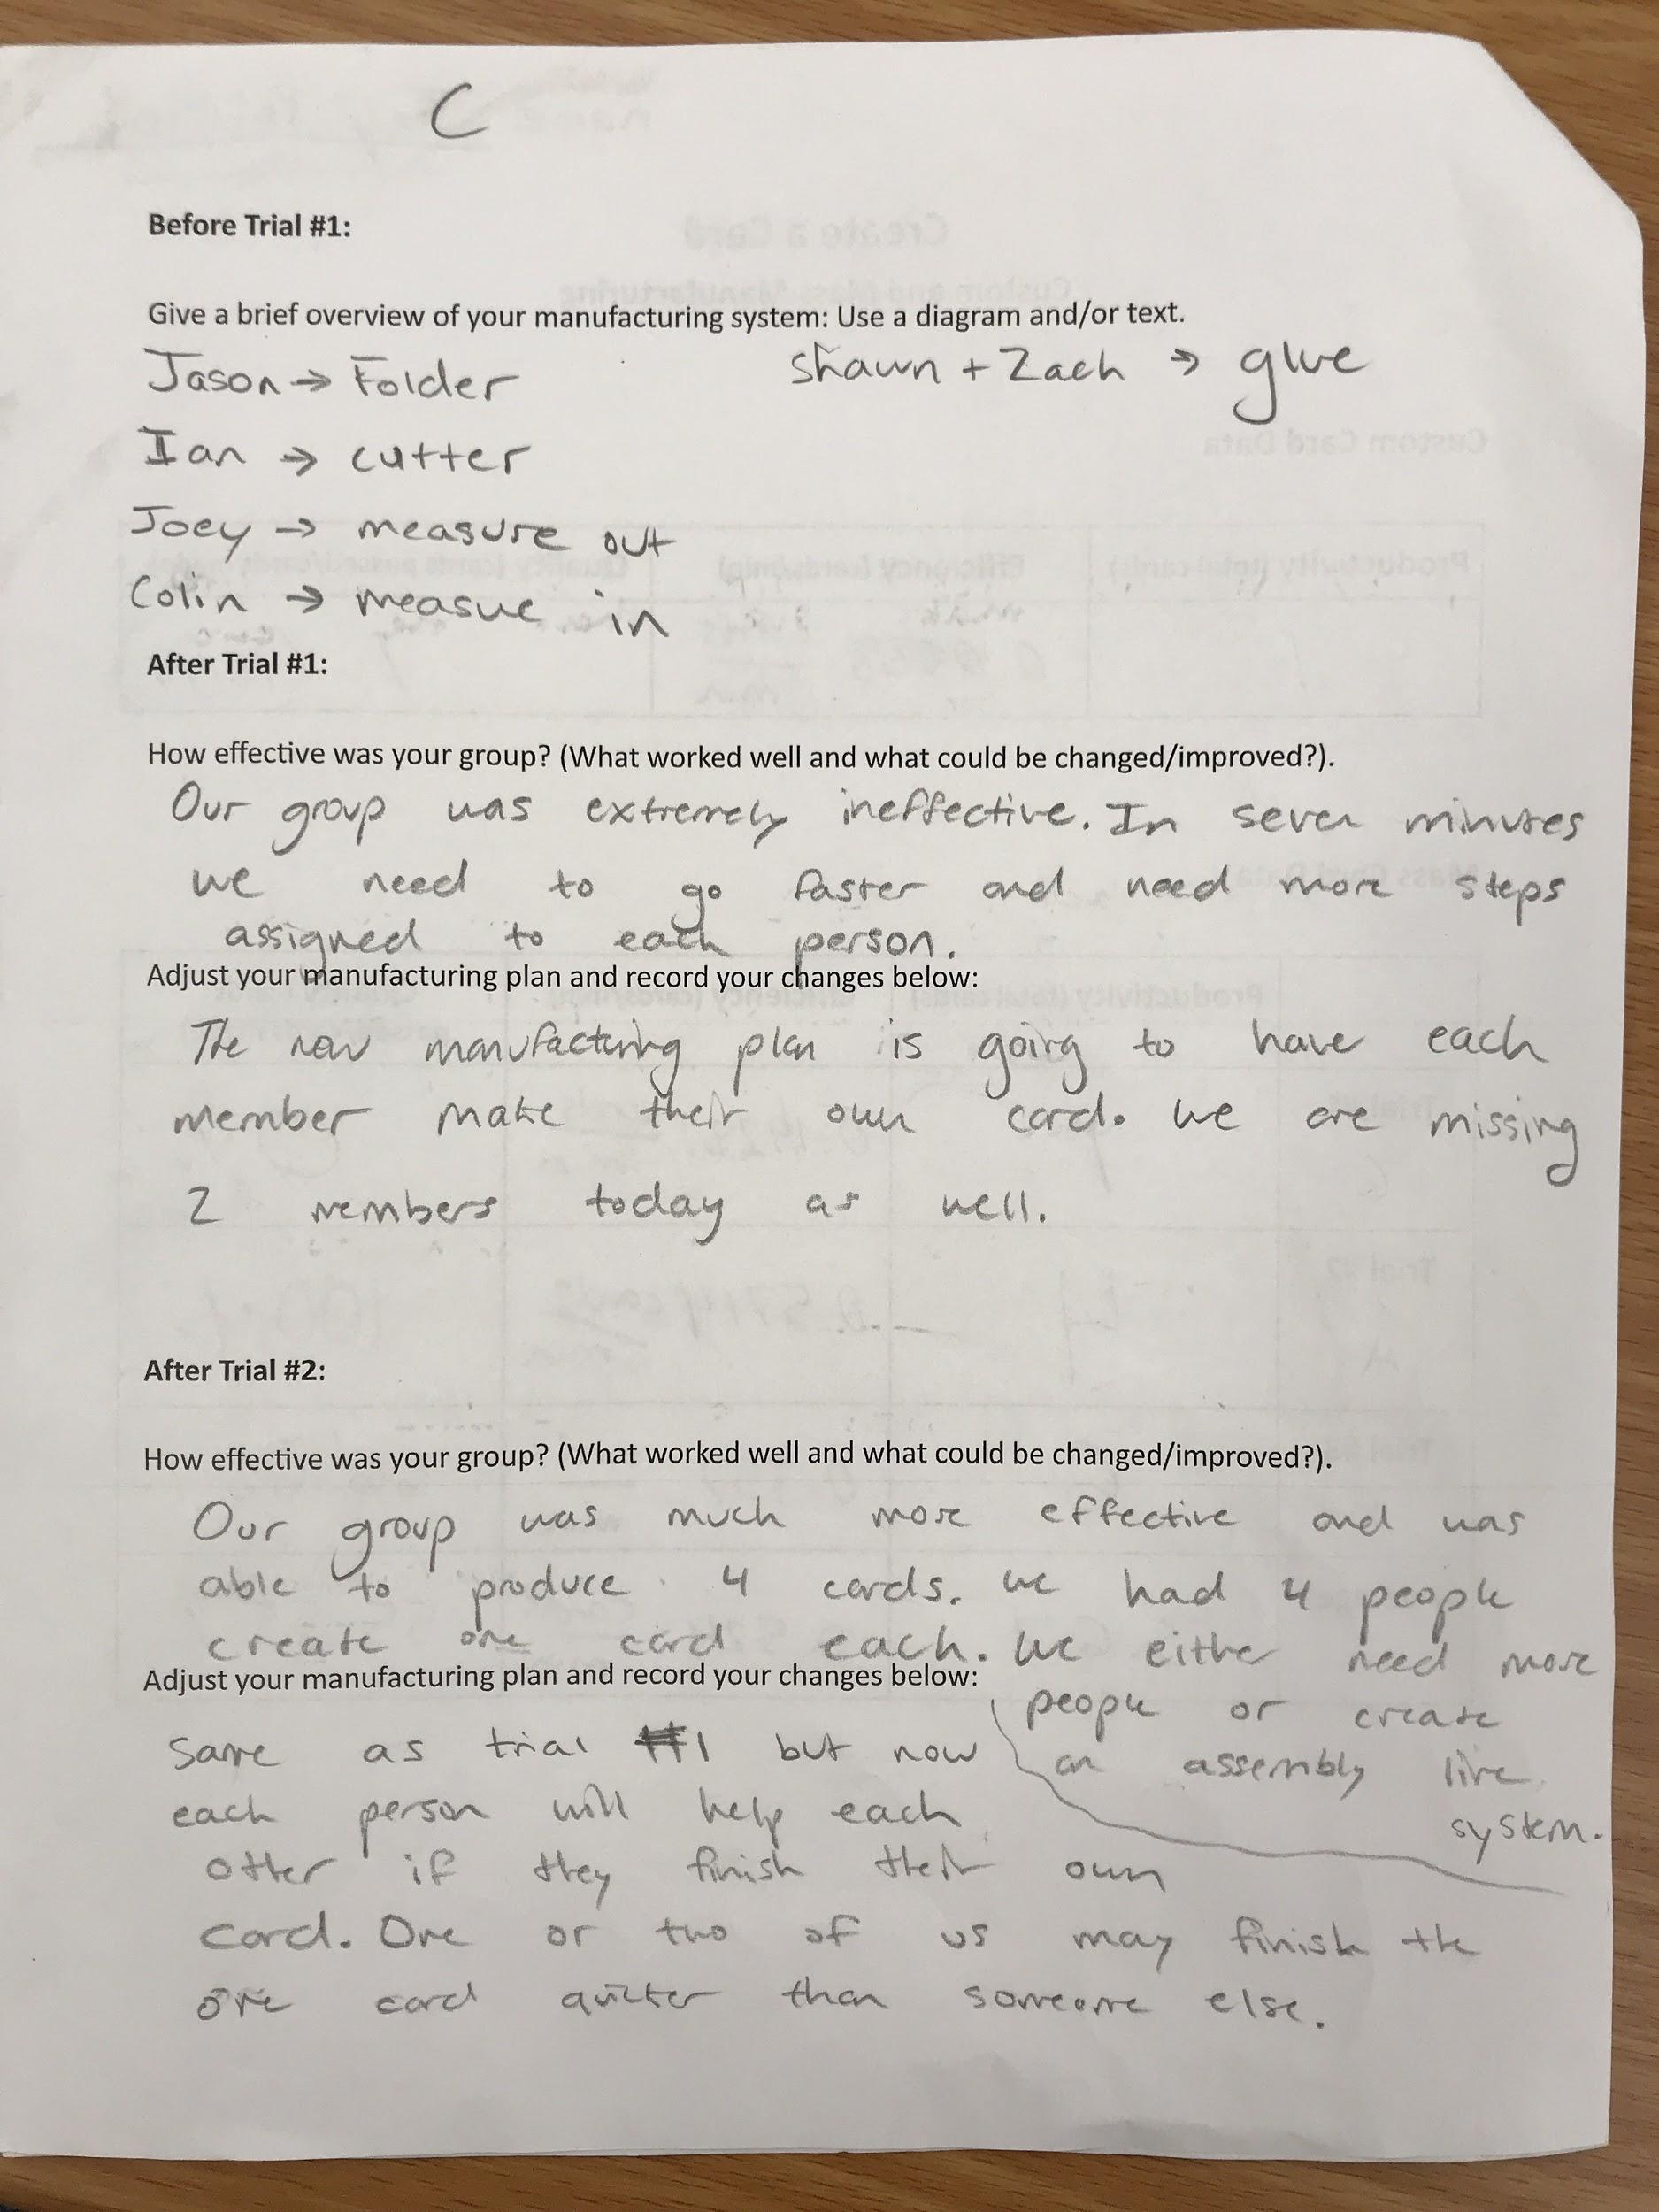 C
Before Trial #1:
Give a brief overview of your manufacturing system: Use a diagram and/or text.
Jason → Folder
Shawn + Zach → glue
Ian → cutter
Joey → measure out
Colin → measue in
After Trial #1:
How effective was your group? (What worked well and what could be changed/improved?).
Our group was extremely ineffective. In seven minutes
we need to go faster and need more steps
assigned to each person.
Adjust your manufacturing plan and record your changes below:
The new manufacturing plan is going to have each
member make their own card. We are missing
2 members today as well.
After Trial #2:
How effective was your group? (What worked well and what could be changed/improved?).
Our group was much more effective and was
able to produce 4 cards. We had 4 people
create one card each. We either need more
people or create
an assembly line
system.
Adjust your manufacturing plan and record your changes below:
Same as trial #1 but now
each person will help each
other if they finish their own
card. One or two of us may finish the
one card quicker than someone else.